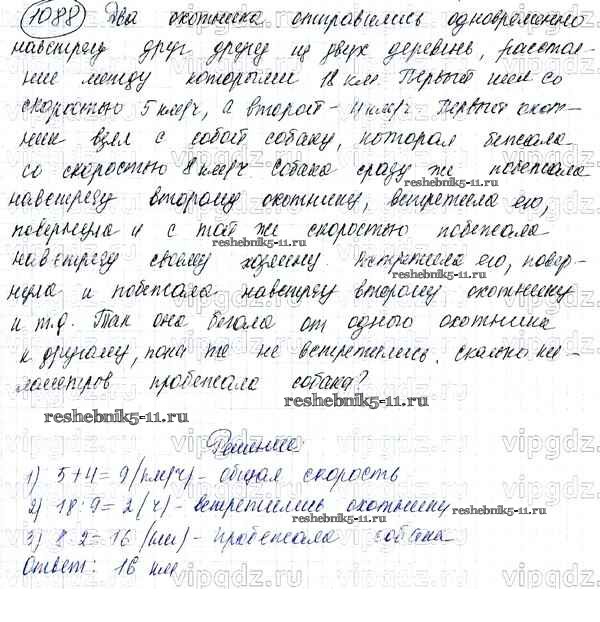 1088 Два охотника отправились одновременно
навстречу друг другу из двух деревень, расстоя-
ние между которыми 18 км. Первый шел со
скоростью 5 км/ч, а второй - 4 км/ч. Первый охот-
ник взял с собой собаку, которая бежала
со скоростью 8 км/ч. Собака сразу же побежала
reshebnik5-11.ru
навстречу второму охотнику, встретила его,
повернула и с той же скоростью побежала
reshebnik5-11.ru
навстречу своему хозяину. Встретила его, повер-
reshebnik5-11.ru
нула и побежала навстречу второму охотнику
и т.д. Так она бегала от одного охотника
к другому, пока те не встретились. Сколько ки-
лометров пробежала собака?
reshebnik5-11.ru
reshebnik5-11.ru
Решение
1) 5+4=9 (км/ч) - общая скорость
2) 18:9=2 (ч) - встретились охотники
reshebnik5-11.ru
3) 8·2=16 (км) - пробежала собака
Ответ: 16 км.
vipgdz.ru vipgdz.ru vipgdz.ru